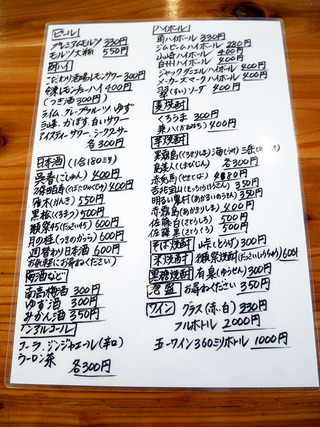 ビール
プレミアムモルツ 330円
モルツ大瓶 550円
酎ハイ
こだわり酒場レモンサワー 300円
レモンチューハイ 400円
(つぎ酒 300円)
ライム、グレープフルーツ、ゆず
かぼす、白いサワー
アイスティーサワー、シークヮサー
各300円
日本酒 (1合180ミリ)
400円
400円
雁木(がんぎ) 550円
黒松(くろまつ) 500円
獺祭45(だっさい45) 600円
月の桂(つきのかつら) 600円
週替わり日本酒 600円
(お気軽におたずねください)
梅酒など
南高梅酒 300円
ゆず酒 300円
みかん酒 350円
ノンアルコール
コーラ、ジンジャエール(辛口)
ウーロン茶
各300円
ハイボール
角ハイボール 330円
ジムビームハイボール 280円
山崎ハイボール 400円
白州ハイボール 400円
ジャックダニエルハイボール 400円
メーカーズマークハイボール 400円
(すい)ソーダ 400円
麦焼酎
くろうま 300円
兼八(かねはち) 400円
芋焼酎
各300円
島美人(しまびじん)
赤兎馬(せきとば)
350円
明るい農村(あかるいのうそん) 350円
赤霧島(あかきりしま) 400円
佐藤白(さとうしろ) 500円
佐藤黒(さとうくろ) 500円
そば焼酎 峠(とうげ) 300円
米焼酎 獺祭焼酎(だっさいしょうちゅう) 600円
黒糖焼酎 有泉(ゆうせん) 300円
泡盛 お尋ねください 350円
ワイン グラス(赤・白) 330円
フルボトル 2000円
五一ワイン360ミリボトル 1000円